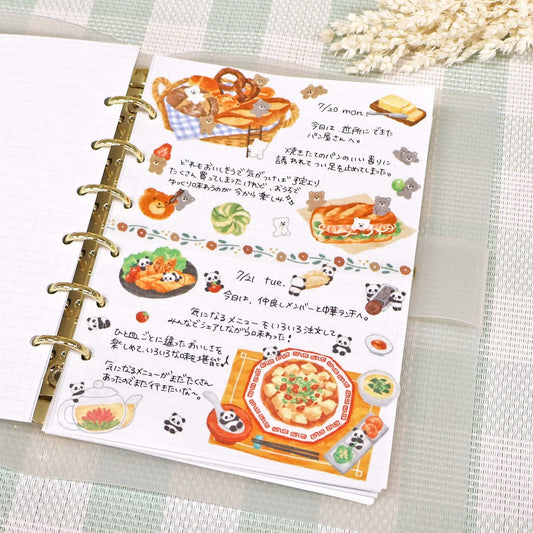 7/20 mon.
今日は、近所にできた
パン屋さんへ。
焼きたてのパンのいい香りに
誘われてつい足を止めてしまった。
どれもおいしそうで気がつけば予定より
たくさん買ってしまったけれど、おうちで
ゆっくり味わうのが今から楽しみ
7/21 tue.
今日は、仲良しメンバーと中華ランチへ。
気になるメニューをいろいろ注文して
みんなでシェアしながら味わった!
ひと皿ごとに違ったおいしさを
楽しめて、いろいろな味を堪能♪
気になるメニューがまだたくさん
あったのでまた行きたいな〜